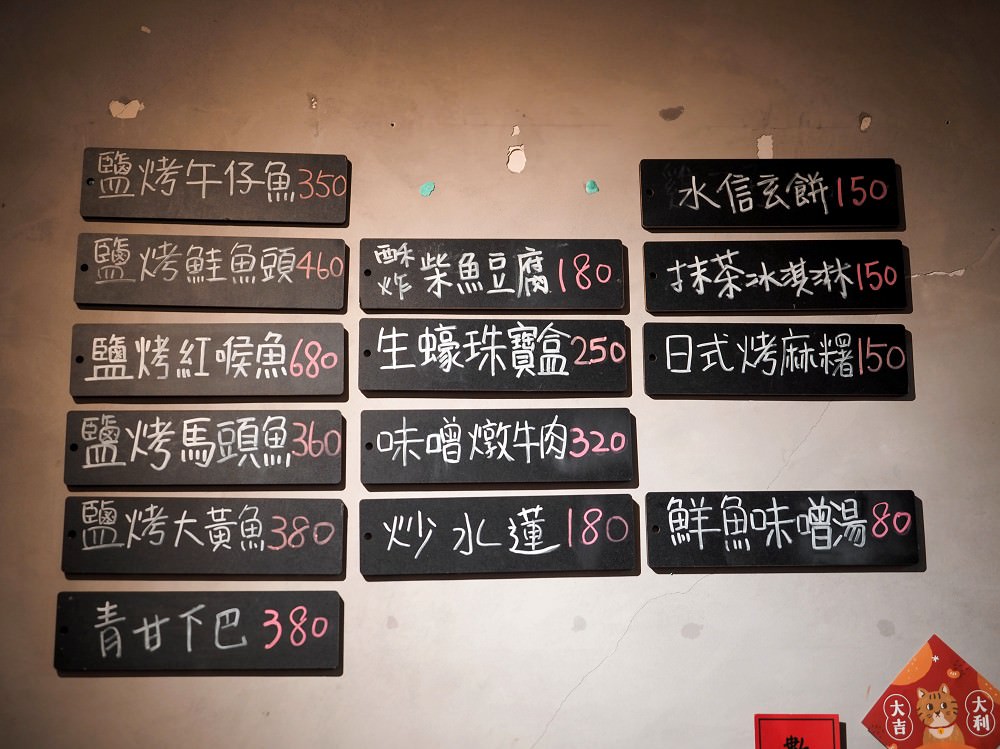 鹽烤午仔魚350
鹽烤鮭魚頭460
鹽烤紅喉魚680
鹽烤馬頭魚360
鹽烤大黃魚380
青甘下巴 380
酥炸柴魚豆腐180
生蠔珠寶盒250
味噌燉牛肉320
炒水蓮180
水信玄餅150
抹茶冰淇淋150
日式烤麻糬150
鮮魚味噌湯80
大吉
大利